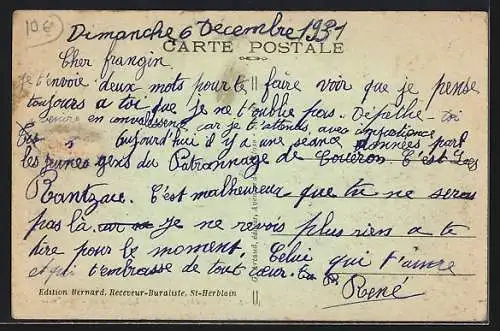 10€
Dimanche 6 Décembre 1931
CARTE POSTALE
Cher frangin
Je t'envoie deux mots pour te faire voir que je pense
toujours a toi que je ne t'oublie pas. Dépêche-toi
venir en convalescence car je t'attends avec impatience
Aujourd'hui il y a une séance données par
les jeunes gens du Patronnage de Couëron C'est Les
Rantzau. C'est malheureux que tu ne seras
pas là. Je ne vois plus rien a te
dire pour le moment. Celui qui t'aime
et qui t'embrasse de tout cœur.
René
Edition Bernard, Receveur-Buraliste, St-Herblain